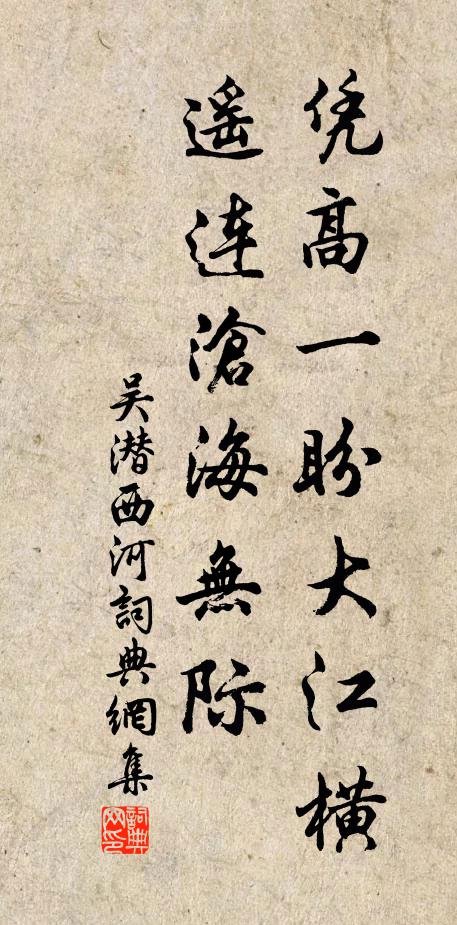 凭高一盼大江横
遥连滄海無际
吴潜西河詞典網集
詞典网印